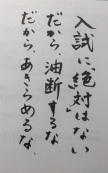 入試に「絶対」はない
だから、油断するな
だから、あきらめるな